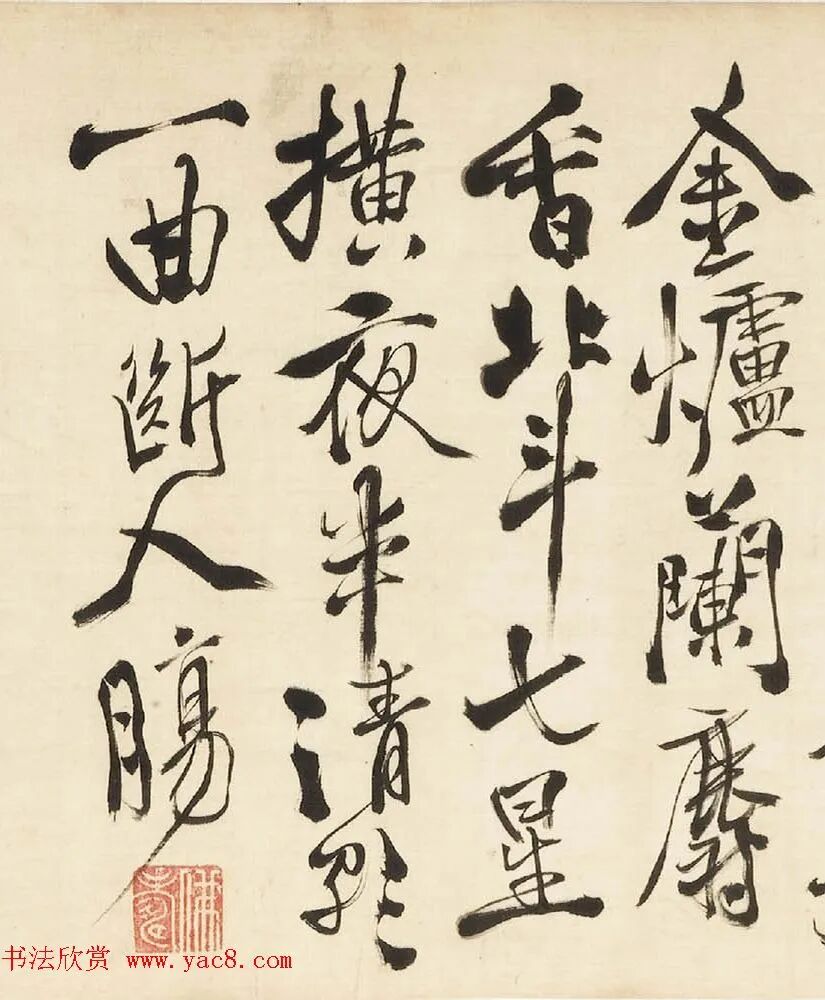 金爐蘭麝
香北斗七星
橫夜半清歌
一曲斷人腸
书法欣赏 www.yac8.com